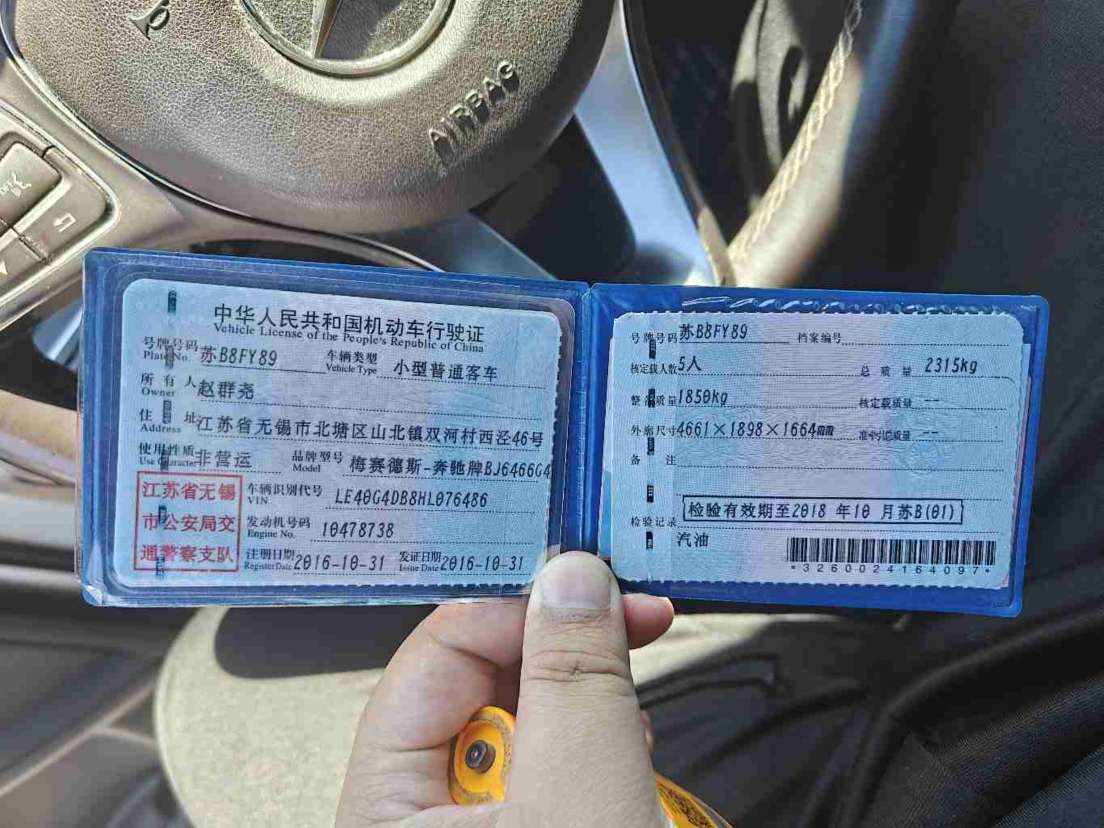 AIRBAG
中华人民共和国机动车行驶证
Vehicle License of the People's Republic of China
号牌号码 苏B8FY89 车辆类型 小型普通客车
Plate No. Vehicle Type
所有人 赵群尧
Owner
住址 江苏省无锡市北塘区山北镇双河村西泾46号
Address
使用性质 非营运 品牌型号 梅赛德斯-奔驰牌BJ6466G4
Use Character Model
江苏省无锡
市公安局交
通警察支队
车辆识别代号 LE40G4DB8HL076486
VIN
发动机号码 10478738
Engine No.
注册日期 2016-10-31 发证日期 2016-10-31
Register Date Issue Date
号牌号码 苏B8FY89 档案编号
核定载人数 5人 总质量 2315kg
整备质量 1850kg 核定载质量 --
外廓尺寸 4661×1898×1664 准牵引总质量 --
备注
检验有效期至2018 年10 月苏B(01)
检验记录
汽油
*3260024164097*